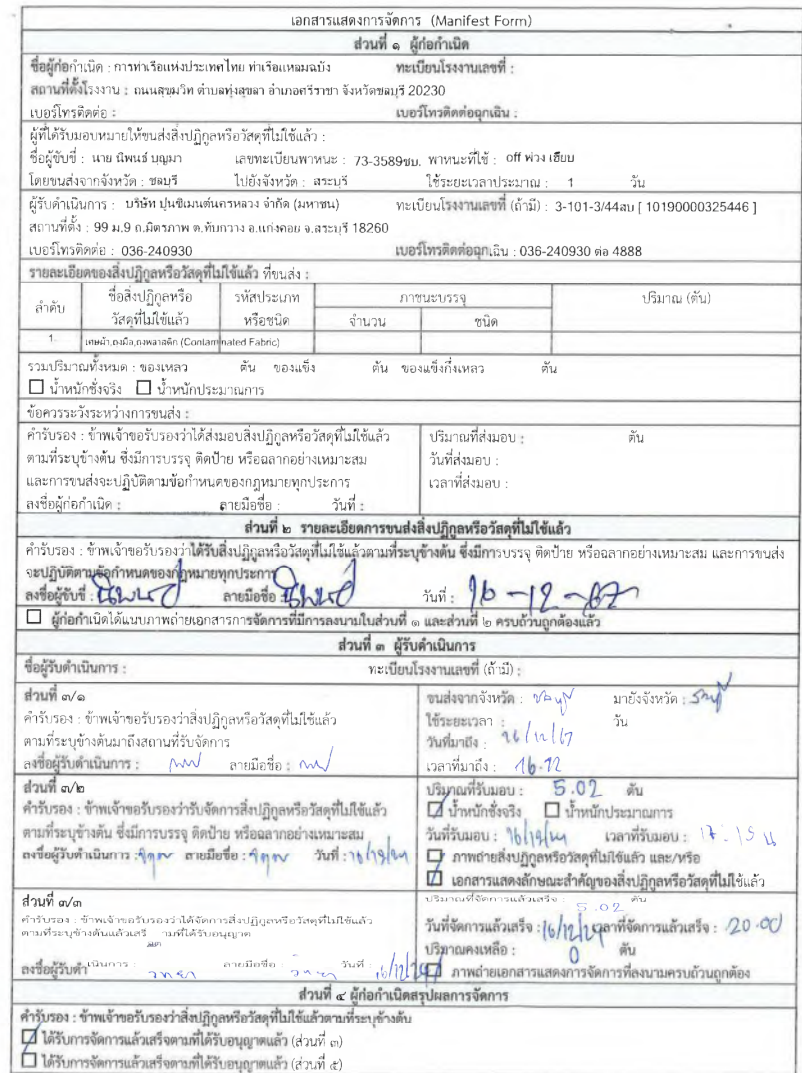 เอกสารแสดงการจัดการ (Manifest Form)
ส่วนที่ ๑ ผู้ก่อกำเนิด
ชื่อผู้ก่อกำเนิด : การท่าเรือแห่งประเทศไทย ท่าเรือแหลมฉบัง ทะเบียนโรงงานเลขที่ :
สถานที่ตั้งโรงงาน : ถนนสุขุมวิท ตำบลทุ่งสุขลา อำเภอศรีราชา จังหวัดชลบุรี 20230
เบอร์โทรติดต่อ : เบอร์โทรติดต่อฉุกเฉิน :
ผู้ที่ได้รับมอบหมายให้ขนส่งสิ่งปฏิกูลหรือวัสดุที่ไม่ใช้แล้ว :
ชื่อผู้ขับขี่ : นาย นิพนธ์ บุญมา เลขทะเบียนพาหนะ : 73-3589ชบ. พาหนะที่ใช้ : off พ่วง เฮียบ
โดยขนส่งจากจังหวัด : ชลบุรี ไปยังจังหวัด : สระบุรี ใช้ระยะเวลาประมาณ : 1 วัน
ผู้รับดำเนินการ : บริษัท ปูนซิเมนต์นครหลวง จำกัด (มหาชน) ทะเบียนโรงงานเลขที่ (ถ้ามี) : 3-101-3/44สบ [ 10190000325446 ]
สถานที่ตั้ง : 99 ม.9 ถ.มิตรภาพ ต.ทับกวาง อ.แก่งคอย จ.สระบุรี 18260
เบอร์โทรติดต่อ : 036-240930 เบอร์โทรติดต่อฉุกเฉิน : 036-240930 ต่อ 4888
รายละเอียดของสิ่งปฏิกูลหรือวัสดุที่ไม่ใช้แล้ว ที่ขนส่ง :
ลำดับ ชื่อสิ่งปฏิกูลหรือ วัสดุที่ไม่ใช้แล้ว รหัสประเภท หรือชนิด ภาชนะบรรจุ จำนวน ชนิด ปริมาณ (ตัน)
1 เศษผ้า,ถุงมือ,ถุงพลาสติก (Contaminated Fabric)
รวมปริมาณทั้งหมด : ของเหลว ตัน ของแข็ง ตัน ของแข็งกึ่งเหลว ตัน
น้ำหนักชั่งจริง น้ำหนักประมาณการ
ข้อควรระวังระหว่างการขนส่ง :
คำรับรอง : ข้าพเจ้าขอรับรองว่าได้ส่งมอบสิ่งปฏิกูลหรือวัสดุที่ไม่ใช้แล้ว
ตามที่ระบุข้างต้น ซึ่งมีการบรรจุ ติดป้าย หรือฉลากอย่างเหมาะสม
และการขนส่งจะปฏิบัติตามข้อกำหนดของกฎหมายทุกประการ
ลงชื่อผู้ก่อกำเนิด : ลายมือชื่อ : วันที่ :
ปริมาณที่ส่งมอบ : ตัน
วันที่ส่งมอบ :
เวลาที่ส่งมอบ :
ส่วนที่ ๒ รายละเอียดการขนส่งสิ่งปฏิกูลหรือวัสดุที่ไม่ใช้แล้ว
คำรับรอง : ข้าพเจ้าขอรับรองว่าได้รับสิ่งปฏิกูลหรือวัสดุที่ไม่ใช้แล้วตามที่ระบุข้างต้น ซึ่งมีการบรรจุ ติดป้าย หรือฉลากอย่างเหมาะสม และการขนส่ง
จะปฏิบัติตามข้อกำหนดของกฎหมายทุกประการ
ลงชื่อผู้ขับขี่ : นิพนธ์ ลายมือชื่อ : นิพนธ์ วันที่ : 16-12-67
ผู้ก่อกำเนิดได้แนบภาพถ่ายเอกสารการจัดการที่มีการลงนามในส่วนที่ ๑ และส่วนที่ ๒ ครบถ้วนถูกต้องแล้ว
ส่วนที่ ๓ ผู้รับดำเนินการ
ชื่อผู้รับดำเนินการ : ทะเบียนโรงงานเลขที่ (ถ้ามี) :
ส่วนที่ ๓/๑
คำรับรอง : ข้าพเจ้าขอรับรองว่าสิ่งปฏิกูลหรือวัสดุที่ไม่ใช้แล้ว
ตามที่ระบุข้างต้นมาถึงสถานที่รับจัดการ
ลงชื่อผู้รับดำเนินการ : ลายมือชื่อ :
ขนส่งจากจังหวัด : ชลบุรี มายังจังหวัด :
ใช้ระยะเวลา : วัน
วันที่มาถึง : 16/12/67
เวลาที่มาถึง : 16.12
ส่วนที่ ๓/๒
คำรับรอง : ข้าพเจ้าขอรับรองว่ารับจัดการสิ่งปฏิกูลหรือวัสดุที่ไม่ใช้แล้ว
ตามที่ระบุข้างต้น ซึ่งมีการบรรจุ ติดป้าย หรือฉลากอย่างเหมาะสม
ลงชื่อผู้รับดำเนินการ : ลายมือชื่อ : วันที่ :
ปริมาณที่รับมอบ : 5.02 ตัน
น้ำหนักชั่งจริง น้ำหนักประมาณการ
วันที่รับมอบ : เวลาที่รับมอบ : 17.15 น
ภาพถ่ายสิ่งปฏิกูลหรือวัสดุที่ไม่ใช้แล้ว และ/หรือ
เอกสารแสดงลักษณะสำคัญของสิ่งปฏิกูลหรือวัสดุที่ไม่ใช้แล้ว
ส่วนที่ ๓/๓
คำรับรอง : ข้าพเจ้าขอรับรองว่าได้จัดการสิ่งปฏิกูลหรือวัสดุที่ไม่ใช้แล้ว
ตามที่ระบุข้างต้นแล้วเสร็ ามที่ได้รับอนุญาต
ลงชื่อผู้รับดำเนินการ : วิทยา ลายมือชื่อ : วิทยา วันที่ :
ปริมาณที่จัดการแล้วเสร็จ : 5.02 ตัน
วันที่จัดการแล้วเสร็จ : เวลาที่จัดการแล้วเสร็จ : 20.00
ปริมาณคงเหลือ : 0 ตัน
ภาพถ่ายเอกสารแสดงการจัดการที่ลงนามครบถ้วนถูกต้อง
ส่วนที่ ๔ ผู้ก่อกำเนิดสรุปผลการจัดการ
คำรับรอง : ข้าพเจ้าขอรับรองว่าสิ่งปฏิกูลหรือวัสดุที่ไม่ใช้แล้วตามที่ระบุข้างต้น
ได้รับการจัดการแล้วเสร็จตามที่ได้รับอนุญาตแล้ว (ส่วนที่ ๓)
ได้รับการจัดการแล้วเสร็จตามที่ได้รับอนุญาตแล้ว (ส่วนที่ ๕)